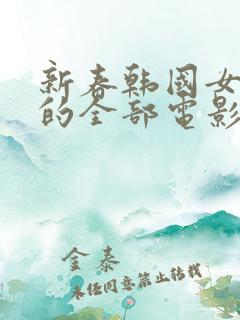 新春韩国女
的全部电影
金泰
未经同意禁止转载